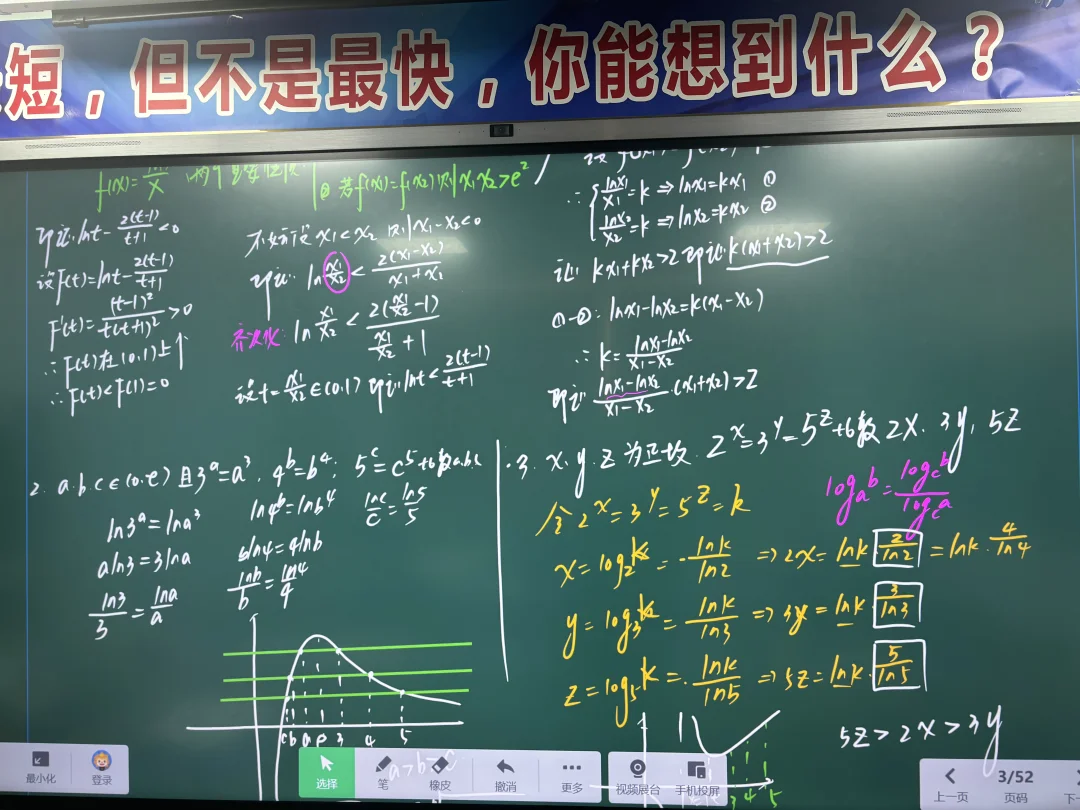 短，但不是最快，你能想到什么？
f(x)=lnx/x 两个重要性质
② 若f(x₁)=f(x₂) 则 x₁x₂>e²
即证: lnt-2(t-1)/(t+1)<0
设F(t)=lnt-2(t-1)/(t+1)
F'(t)=(t-1)²/t(t+1)²>0
∴F(t)在(0,1)上↑
∴F(t)<F(1)=0
不妨设x₁<x₂ 则 x₁-x₂<0
即证: ln x₁/x₂ < 2(x₁-x₂)/(x₁+x₂)
齐次化: ln x₁/x₂ < 2(x₁/x₂-1)/(x₁/x₂+1)
设t=x₁/x₂∈(0,1) 即证lnt<2(t-1)/(t+1)
∴ lnx₁/x₁=k ⇒lnx₁=kx₁ ①
lnx₂/x₂=k ⇒lnx₂=kx₂ ②
证: kx₁+kx₂>2 即证:k(x₁+x₂)>2
①-②: lnx₁-lnx₂=k(x₁-x₂)
∴ k=(lnx₁-lnx₂)/(x₁-x₂)
即证: (lnx₁-lnx₂)/(x₁-x₂)·(x₁+x₂)>2
2. a.b.c∈(0,e) 且3ᵃ=a³, 4ᵇ=b⁴; 5ᶜ=c⁵ 比较a.b.c
ln3ᵃ=lna³
aln3=3lna
ln3/3=lna/a
ln4ᵇ=lnb⁴
bln4=4lnb
lnb/b=ln4/4
lnc/c=ln5/5
c b a e 3 4 5
a>b>c
3. x.y.z为正数. 2ˣ=3ʸ=5ᶻ 比较2x.3y,5z
logₐb=log_c b/log_c a
令2ˣ=3ʸ=5ᶻ=k
x=log₂k=lnk/ln2 ⇒2x=lnk·2/ln2=lnk·4/ln4
y=log₃k=lnk/ln3 ⇒3y=lnk·3/ln3
z=log₅k=lnk/ln5 ⇒5z=lnk·5/ln5
5z>2x>3y
3 4 5
最小化
登录
选择
笔
橡皮
撤消
更多
视频展台
手机投屏
上一页
3/52
页码